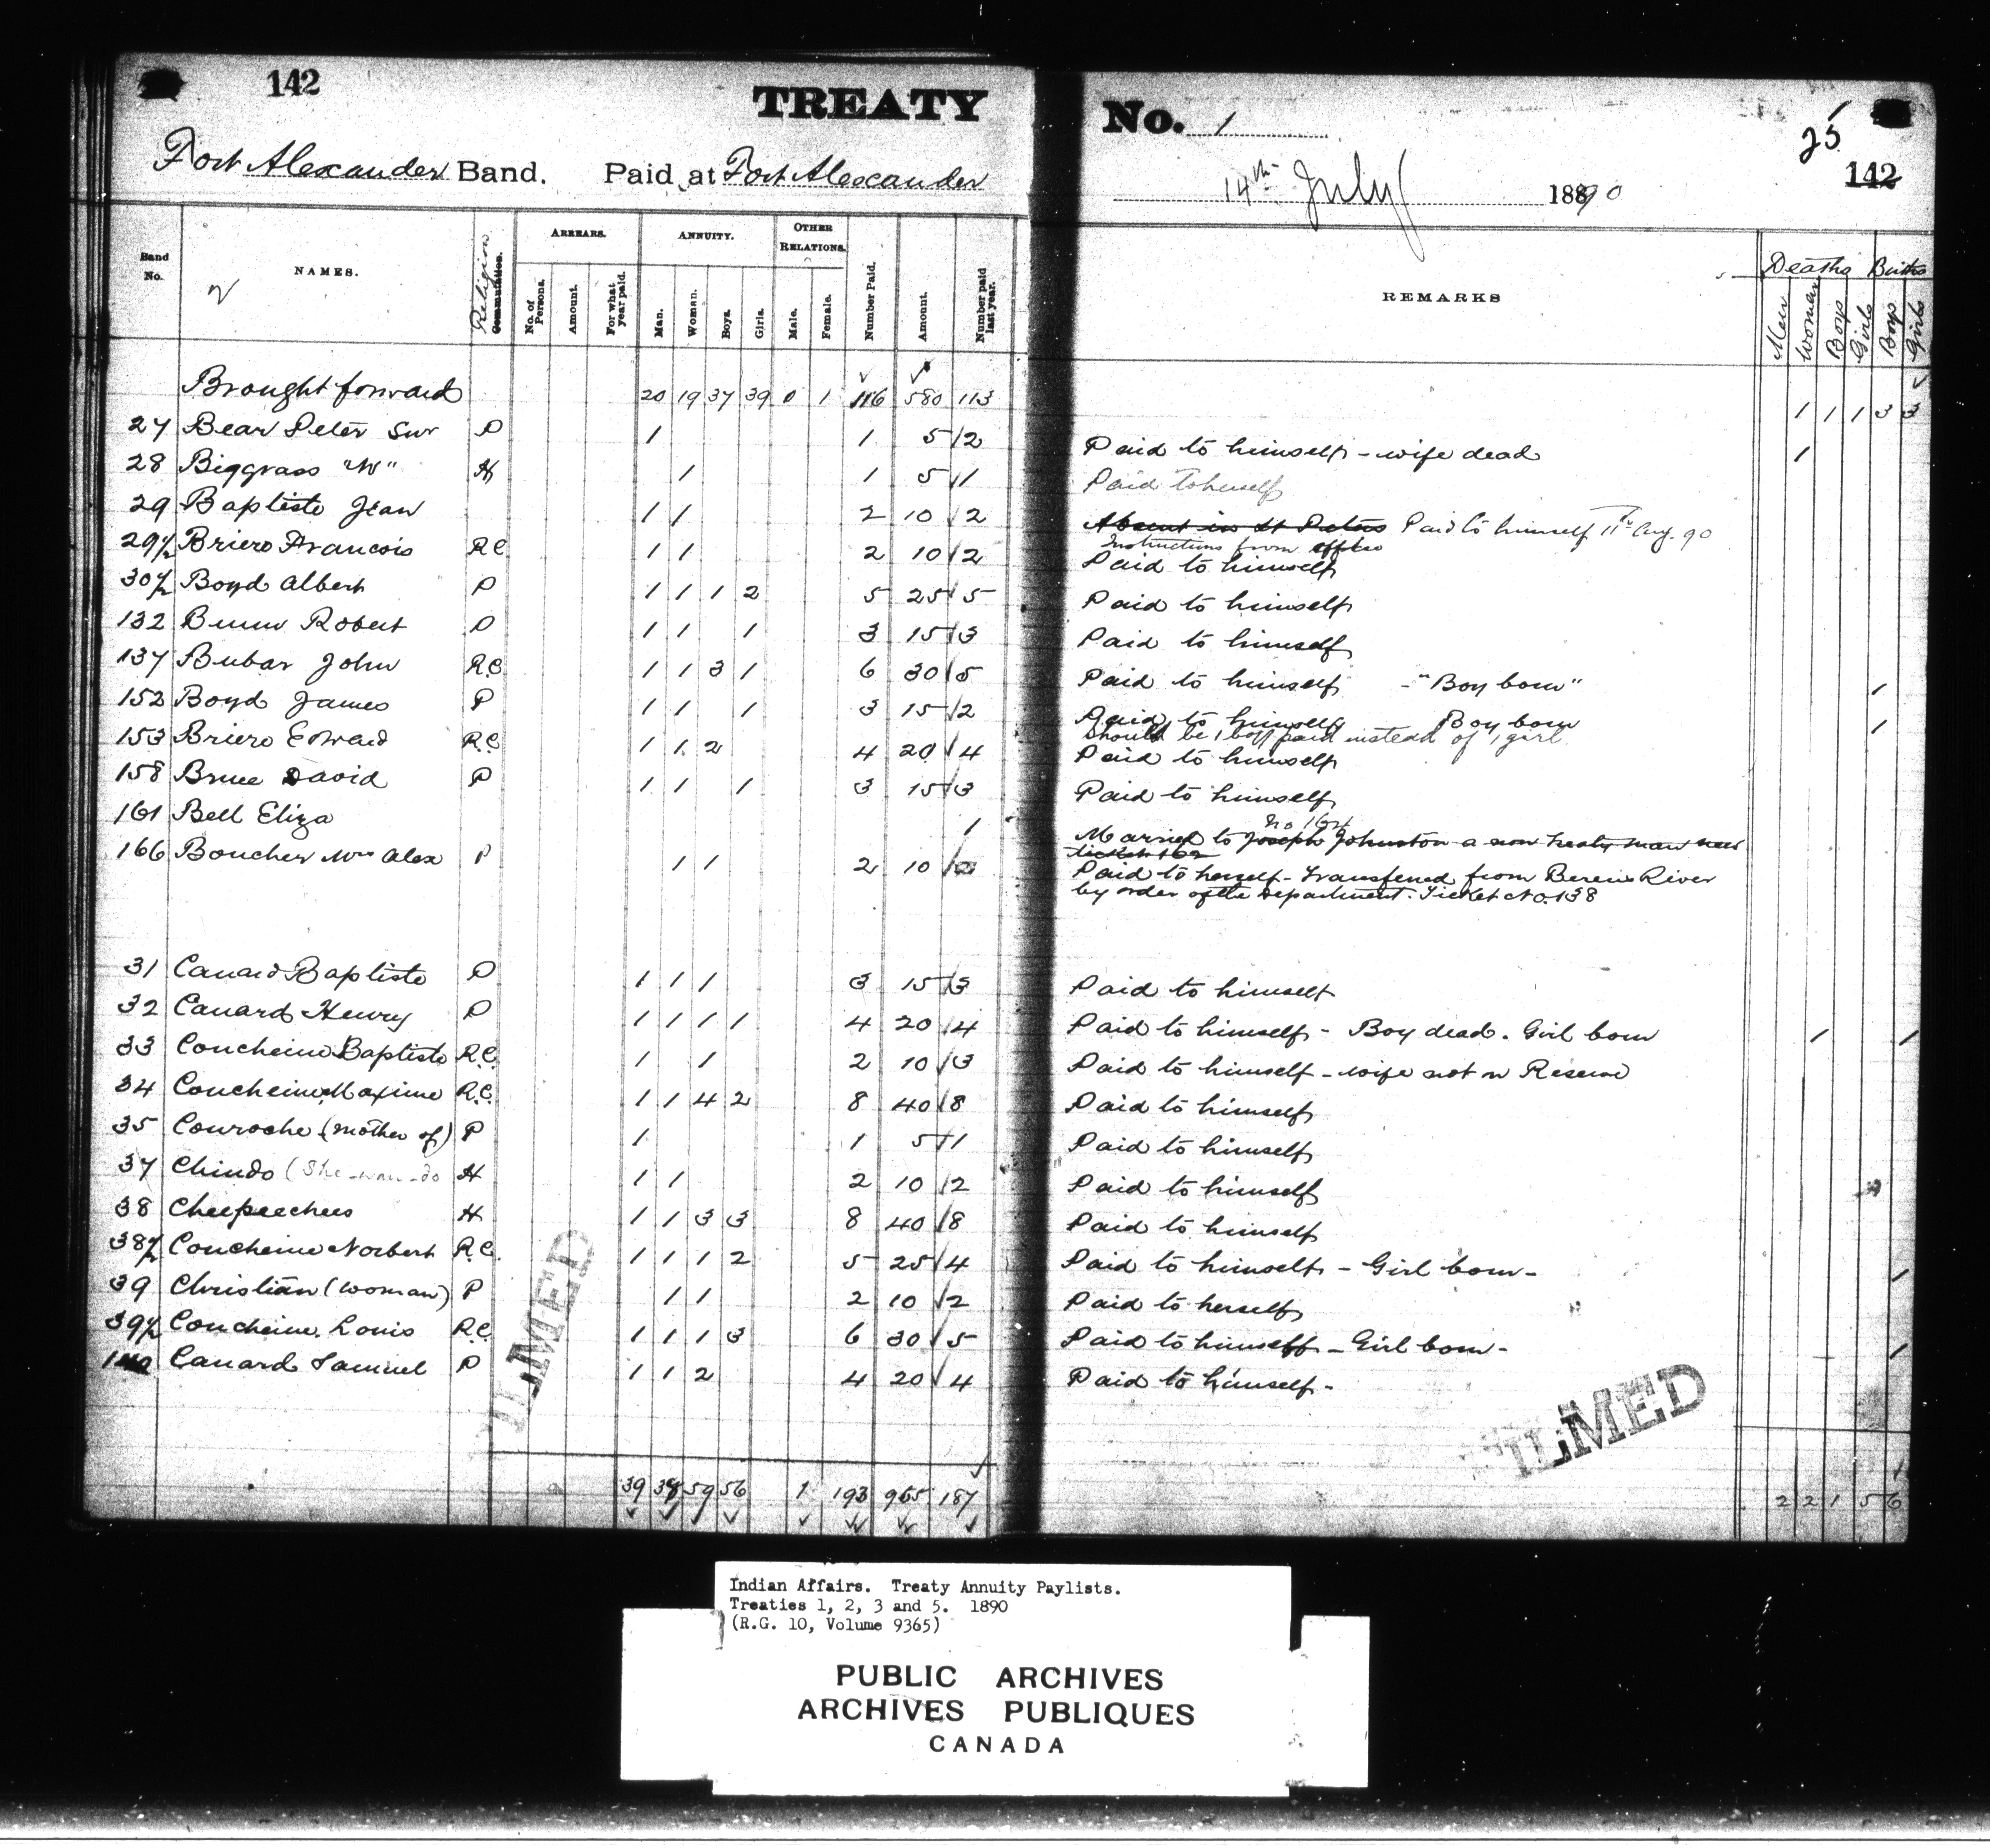 142
TREATY No. 1
25
142
Fort Alexander Band. Paid at Fort Alexander 14th July 1890
Band No. NAMES. Religion Commutation. ARREARS. No. of Persons. Amount. For what year paid. ANNUITY. Man. Woman. Boys. Girls. OTHER RELATIONS. Male. Female. Number Paid. Amount. Number paid last year. REMARKS Deaths Men Women Boys Girls Births Boys Girls
Brought forward 20 19 37 39 0 1 116 580 113 1 1 1 3 3
27 Bear Peter Sur P 1 1 5 2 Paid to himself - wife dead 1
28 Biggrass "W" H 1 1 5 1 Paid to herself
29 Baptiste Jean 1 1 2 10 2 Absent in St Peters Paid to himself 11th Aug. 90
Instructions from office
29½ Briere Francois R.C. 1 1 2 10 2 Paid to himself
30½ Boyd Albert P 1 1 1 2 5 25 5 Paid to himself
132 Bunn Robert P 1 1 1 3 15 3 Paid to himself
137 Bubar John R.C. 1 1 3 1 6 30 5 Paid to himself - "Boy born" 1
152 Boyd James P 1 1 1 3 15 2 Paid to himself Boy born 1
Should be 1 boy paid instead of 1 girl
153 Briere Edward R.C. 1 1 2 4 20 4 Paid to himself
158 Bruce David P 1 1 1 3 15 3 Paid to himself
161 Bell Eliza 1 Married to Joseph Johnston a non treaty man new
No 164
ticket 162
166 Boucher Mrs Alex P 1 1 2 10 2 Paid to herself - Transferred from Berens River
by order of the Department. Ticket No. 138
31 Canard Baptiste P 1 1 1 3 15 3 Paid to himself
32 Canard Henry P 1 1 1 1 4 20 4 Paid to himself - Boy dead. Girl born 1 1
33 Concheine Baptiste R.C. 1 1 2 10 3 Paid to himself - wife not in Reserve
34 Concheine Maxime R.C. 1 1 4 2 8 40 8 Paid to himself
35 Couroche (mother of) P 1 1 5 1 Paid to himself
37 Chindo (She-wan-do H 1 1 2 10 2 Paid to himself
38 Cheepeechees H 1 1 3 3 8 40 8 Paid to himself
38½ Concheine Norbert R.C. 1 1 1 2 5 25 4 Paid to himself - Girl born - 1
39 Christian (woman) P 1 1 2 10 2 Paid to herself
39½ Concheine Louis R.C. 1 1 1 3 6 30 5 Paid to himself - Girl born - 1
Canard Samuel P 1 1 2 4 20 4 Paid to himself -
FILMED
FILMED
39 38 59 56 1 193 965 187 2 2 1 5 6
Indian Affairs. Treaty Annuity Paylists.
Treaties 1, 2, 3 and 5. 1890
(R.G. 10, Volume 9365)
PUBLIC ARCHIVES
ARCHIVES PUBLIQUES
CANADA